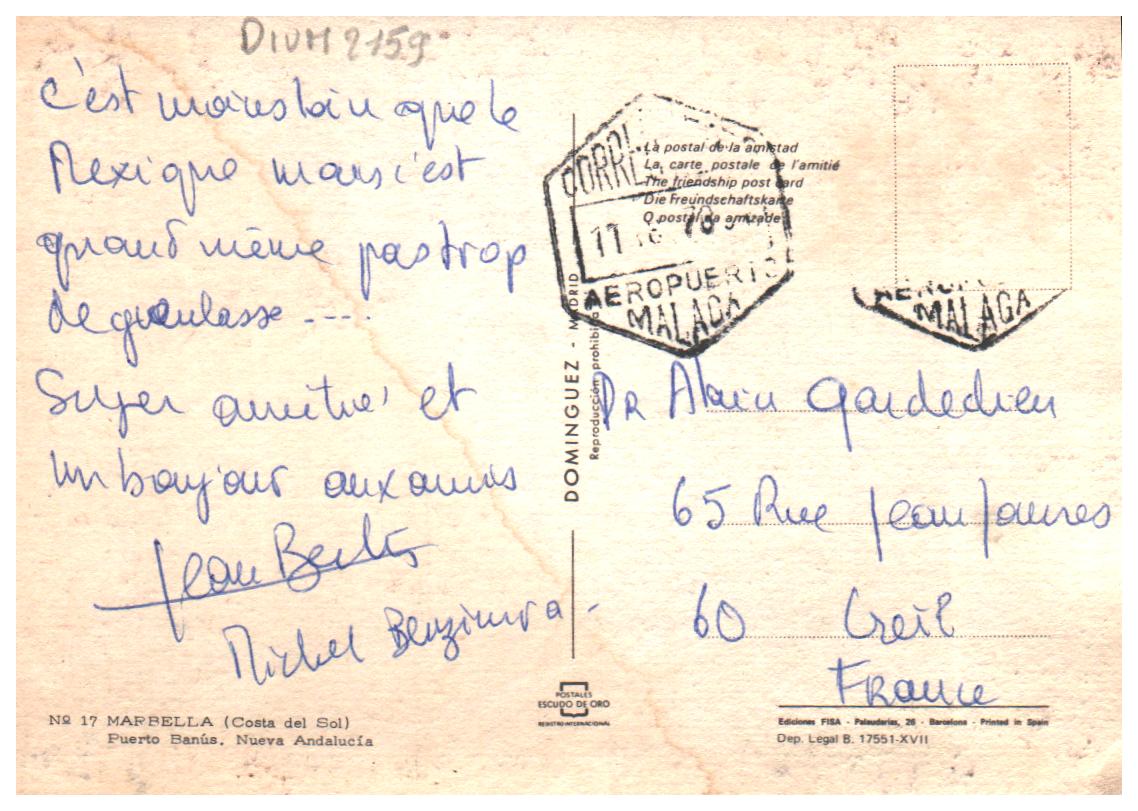 DIVM 2159
C'est moins loin que le
Mexique mais c'est
quand même pas trop
degueulasse ----.
Super amitié et
un bonjour aux amis
Jean
Michel Benzimra -
Nº 17 MARBELLA (Costa del Sol)
Puerto Banús. Nueva Andalucía
DOMINGUEZ - MADRID
Reproducción prohibida
POSTALES
ESCUDO DE ORO
REGISTRO INTERNACIONAL
La postal de la amistad
La carte postale de l'amitié
The friendship post card
Die Freundschaftskarte
O postal da amizade
AEROPUERTO
MALAGA
MALAGA
DR Alain Gardedieu
65 Rue Jean Jaures
60 Creil
France
Ediciones FISA - Palaudarias, 26 - Barcelona - Printed in Spain
Dep. Legal B. 17551-XVII